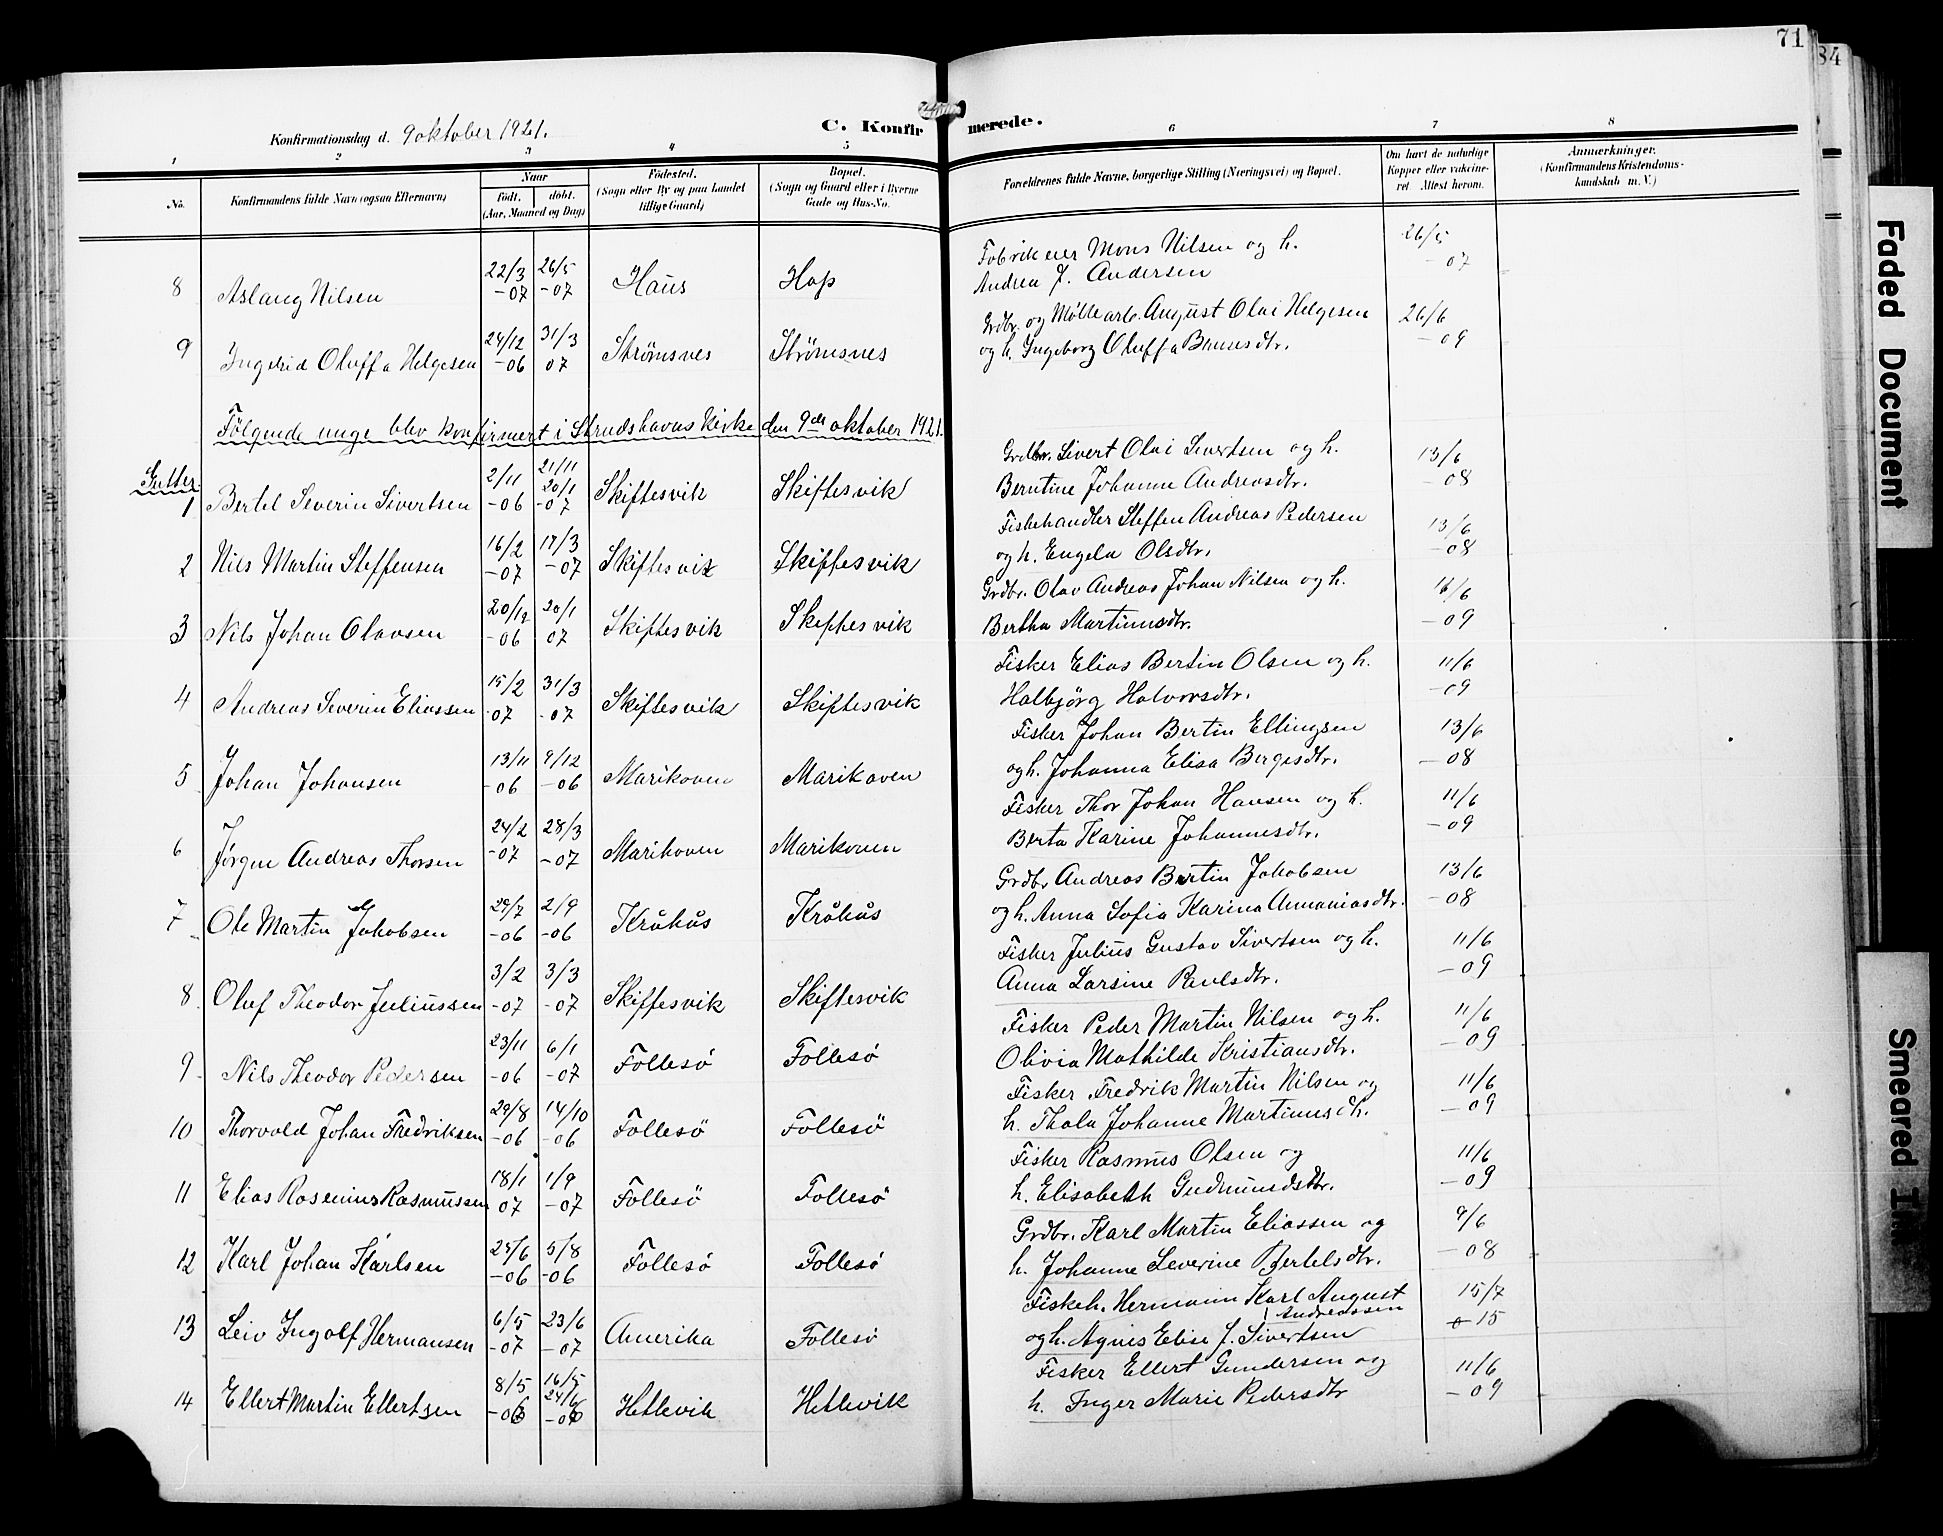 71
84
Konfirmationsdag d. 9 oktober 1921.
C. Konfirmerede.
1 2 3 4 5 6 7 8
No.
Konfirmandens fulde Navn (ogsaa Efternavn)
Naar
født. døbt.
(Aar, Maaned og Dag)
Fødested.
(Sogn eller By og paa Landet
tillige Gaard)
Bopæl.
(Sogn og Gaard eller i Byerne
Gade og Hus-No.
Forældrenes fulde Navne, borgerlige Stilling (Næringsvei) og Bopæl.
Om havt de naturlige
Kopper eller vakcine-
ret Attest herom.
Anmærkninger.
(Konfirmandens Kristendoms-
kundskab m. V.)
8 Aslaug Nilsen 22/3 -07 26/5 -07 Haus Hop Fabrikeier Mons Nilsen og h. 26/5
Andrea J. Andersen -07
9 Ingebrid Oluffa Helgesen 24/12 -06 31/3 07 Strømsnes Strømsnes Grdbr. og Møllearb. August Olai Helgesen 26/6
og h. Ingeborg Oluffa Bernesdtr. -09
Følgende unge blev konfirmert i Strudshavns Kirke den 9de oktober 1921.
Gutter.
1 Bertel Severin Sivertsen 2/11 -06 21/11 20/1 -07 Skiftesvik Skiftesvik Grdbr. Sivert Olai Sivertsen og h. 13/6
Berntine Johanne Andreasdtr. -08
2 Nils Martin Steffensen 16/2 -07 17/3 -07 Skiftesvik Skiftesvik Fiskehandler Steffen Andreas Pedersen 13/6
og h. Engela Olsdtr. -08
3 Nils Johan Olavsen 20/12 -06 20/1 07 Skiftesvik Skiftesvik Grdbr. Olav Andreas Johan Nilsen og h. 16/6
Bertha Martinusdtr. -09
4 Andreas Severin Eliassen 15/2 -07 31/3 -07 Skiftesvik Skiftesvik Fisker Elias Bertin Olsen og h. 11/6
Halbjørg Halvorsdtr. -09
5 Johan Johansen 13/11 -06 9/12 -06 Marikoven Marikoven Fisker Johan Bertin Ellingsen 13/6
og h. Johanna Elisa Børgesdtr. -08
6 Jørgen Andreas Thorsen 24/2 -07 28/3 -07 Marikoven Marikoven Fisker Thor Johan Hansen og h. 11/6
Berta Karine Johannesdtr. -09
7 Ole Martin Jakobsen 29/7 -06 2/9 -06 Kråkås Kråkås Grdbr Andreas Bertin Jakobsen 13/6
og h. Anna Sofia Karina Annaniasdtr. -08
8 Oluf Theodor Juliussen 3/2 -07 3/3 -07 Skiftesvik Skiftesvik Fisker Julius Gustav Sivertsen og h. 11/6
Anna Larsine Paulsdtr. -09
9 Nils Theodor Pedersen 23/11 -06 6/1 -07 Follesö Follesö Fisker Peder Martin Nilsen og h. 11/6
Olivia Mathilde Kristiansdtr. -09
10 Thorvald Johan Fredriksen 29/8 -06 14/10 -06 Follesö Follesö Fisker Fredrik Martin Nilsen og 11/6
h. Thala Johanne Martinusdtr. -09
11 Elias Rosenius Rasmussen 18/1 07 1/9 -07 Follesö Follesö Fisker Rasmus Olsen og 11/6
h. Elisabeth Gudmundsdtr. -09
12 Karl Johan Karlsen 24/6 -06 5/8 -06 Follesö Follesö Grdbr. Karl Martin Eliassen og 9/6
h. Johanne Severine Bertelsdtr. -08
13 Leiv Ingolf Hermansen 6/5 -07 23/6 -07 Amerika Follesö Fiskeh. Hermann Karl August 15/7
Andreassen
og h. Agnes Elise J. Sivertsen -15
14 Ellert Martin Ellertsen 8/5 -06 16/5 24/6 -06 Hetlevik Hetlevik Fisker Ellert Gundersen og 11/6
h. Inger Marie Pedersdtr -09
Faded Document
Smeared Ink